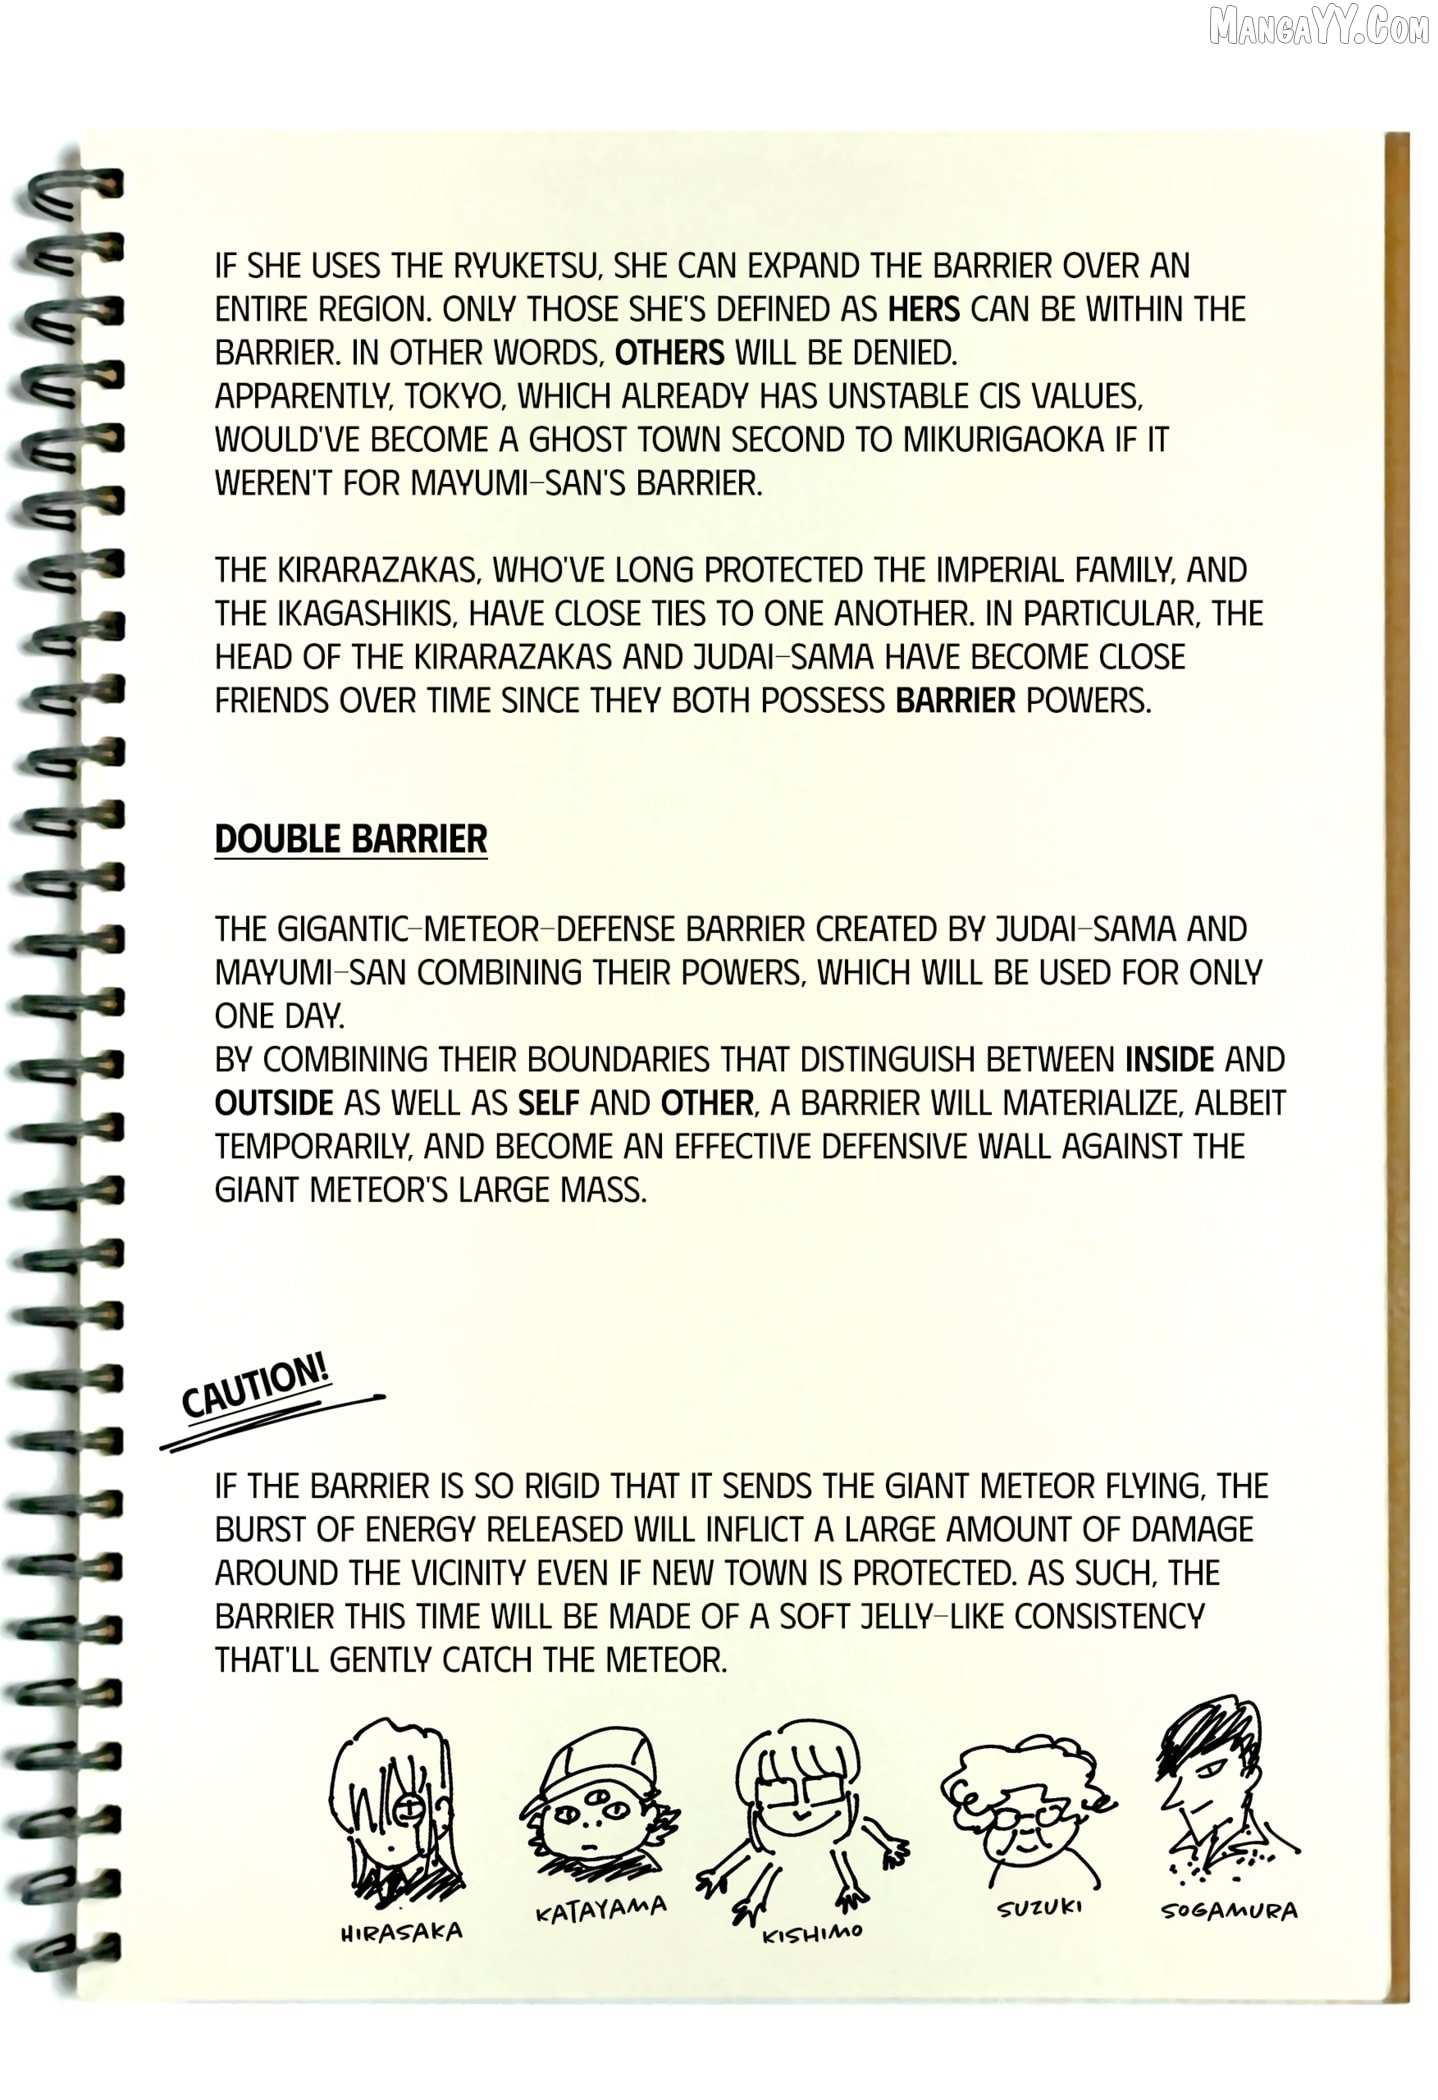 MANGAYY.COM
IF SHE USES THE RYUKETSU, SHE CAN EXPAND THE BARRIER OVER AN
ENTIRE REGION. ONLY THOSE SHE'S DEFINED AS HERS CAN BE WITHIN THE
BARRIER. IN OTHER WORDS, OTHERS WILL BE DENIED.
APPARENTLY, TOKYO, WHICH ALREADY HAS UNSTABLE CIS VALUES,
WOULD'VE BECOME A GHOST TOWN SECOND TO MIKURIGAOKA IF IT
WEREN'T FOR MAYUMI-SAN'S BARRIER.
THE KIRARAZAKAS, WHO'VE LONG PROTECTED THE IMPERIAL FAMILY, AND
THE IKAGASHIKIS, HAVE CLOSE TIES TO ONE ANOTHER. IN PARTICULAR, THE
HEAD OF THE KIRARAZAKAS AND JUDAI-SAMA HAVE BECOME CLOSE
FRIENDS OVER TIME SINCE THEY BOTH POSSESS BARRIER POWERS.
DOUBLE BARRIER
THE GIGANTIC-METEOR-DEFENSE BARRIER CREATED BY JUDAI-SAMA AND
MAYUMI-SAN COMBINING THEIR POWERS, WHICH WILL BE USED FOR ONLY
ONE DAY.
BY COMBINING THEIR BOUNDARIES THAT DISTINGUISH BETWEEN INSIDE AND
OUTSIDE AS WELL AS SELF AND OTHER, A BARRIER WILL MATERIALIZE, ALBEIT
TEMPORARILY, AND BECOME AN EFFECTIVE DEFENSIVE WALL AGAINST THE
GIANT METEOR'S LARGE MASS.
CAUTION!
IF THE BARRIER IS SO RIGID THAT IT SENDS THE GIANT METEOR FLYING, THE
BURST OF ENERGY RELEASED WILL INFLICT A LARGE AMOUNT OF DAMAGE
AROUND THE VICINITY EVEN IF NEW TOWN IS PROTECTED. AS SUCH, THE
BARRIER THIS TIME WILL BE MADE OF A SOFT JELLY-LIKE CONSISTENCY
THAT'LL GENTLY CATCH THE METEOR.
HIRASAKA
KATAYAMA
KISHIMO
SUZUKI
SOGAMURA